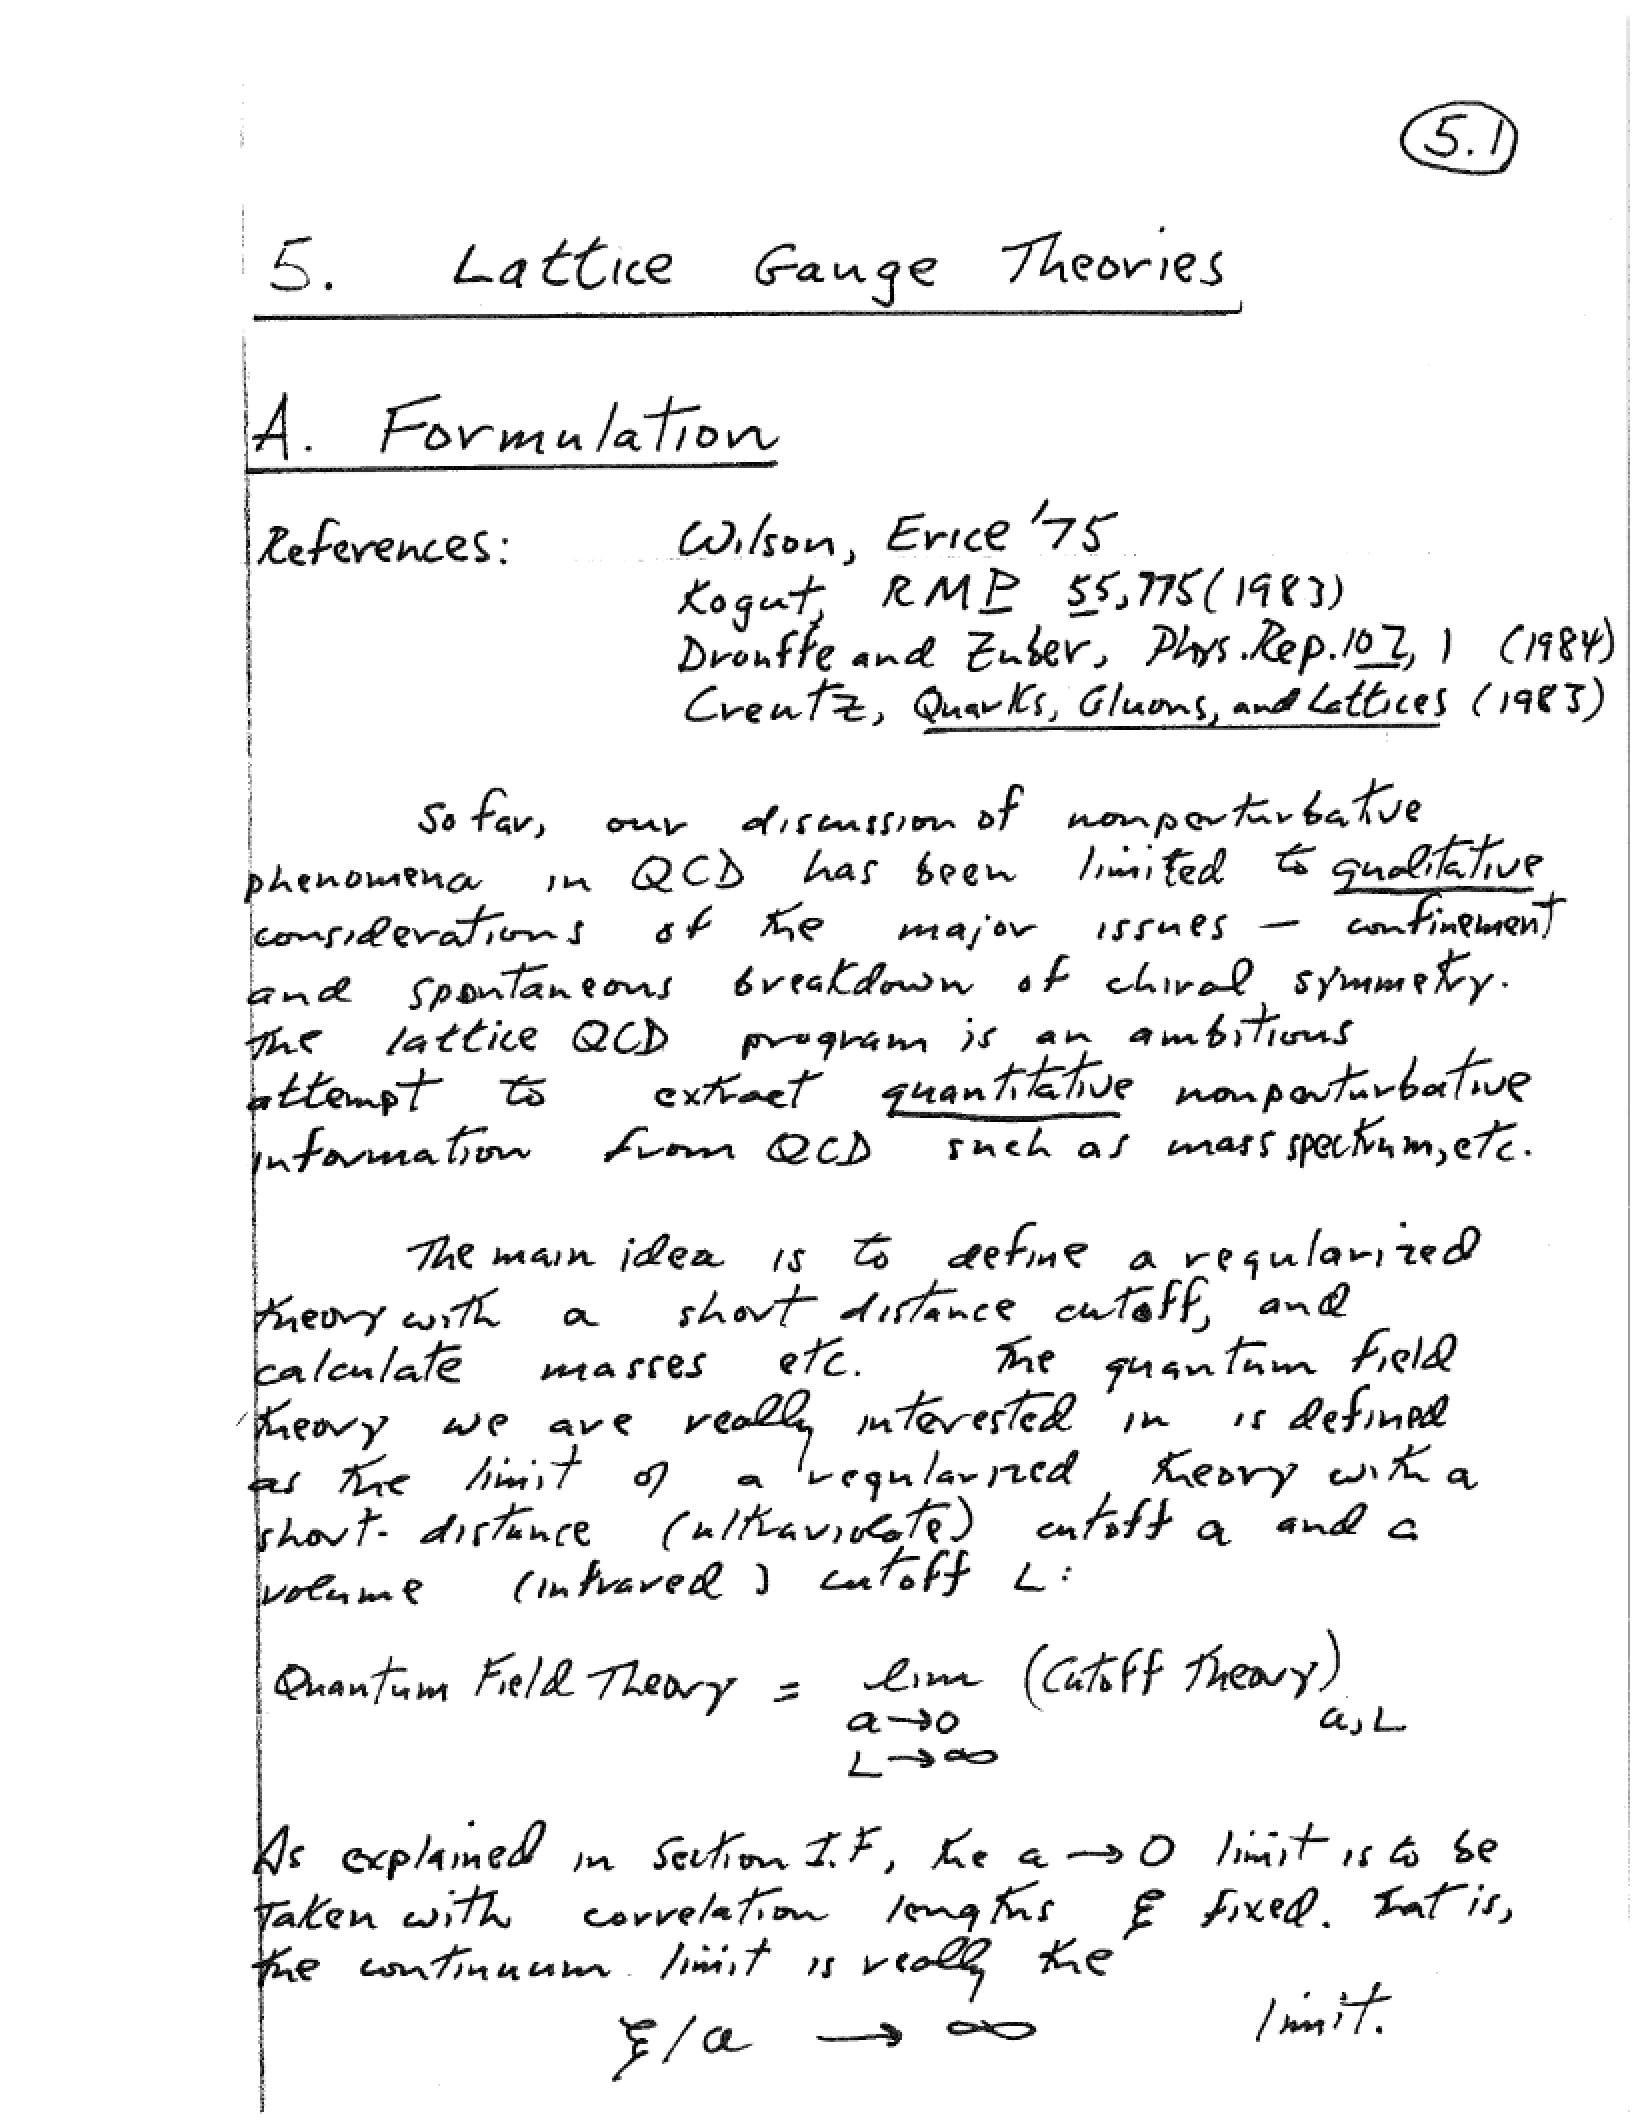 5.1
5. Lattice Gauge Theories
A. Formulation
References: Wilson, Erice '75
Kogut, RMP 55, 775 (1983)
Drouffe and Zuber, Phys. Rep. 102, 1 (1984)
Creutz, Quarks, Gluons, and Lattices (1983)
So far, our discussion of nonperturbative
phenomena in QCD has been limited to qualitative
considerations of the major issues — confinement
and spontaneous breakdown of chiral symmetry.
The lattice QCD program is an ambitious
attempt to extract quantitative nonperturbative
information from QCD such as mass spectrum, etc.
The main idea is to define a regularized
theory with a short distance cutoff, and
calculate masses etc. The quantum field
theory we are really interested in is defined
as the limit of a regularized theory with a
short-distance (ultraviolate) cutoff a and a
volume (infrared) cutoff L:
Quantum Field Theory = lim (Cutoff Theory) a,L
a→0
L→∞
As explained in Section I.F, the a→0 limit is to be
taken with correlation lengths ξ fixed. That is,
the continuum limit is really the
ξ/a → ∞ limit.